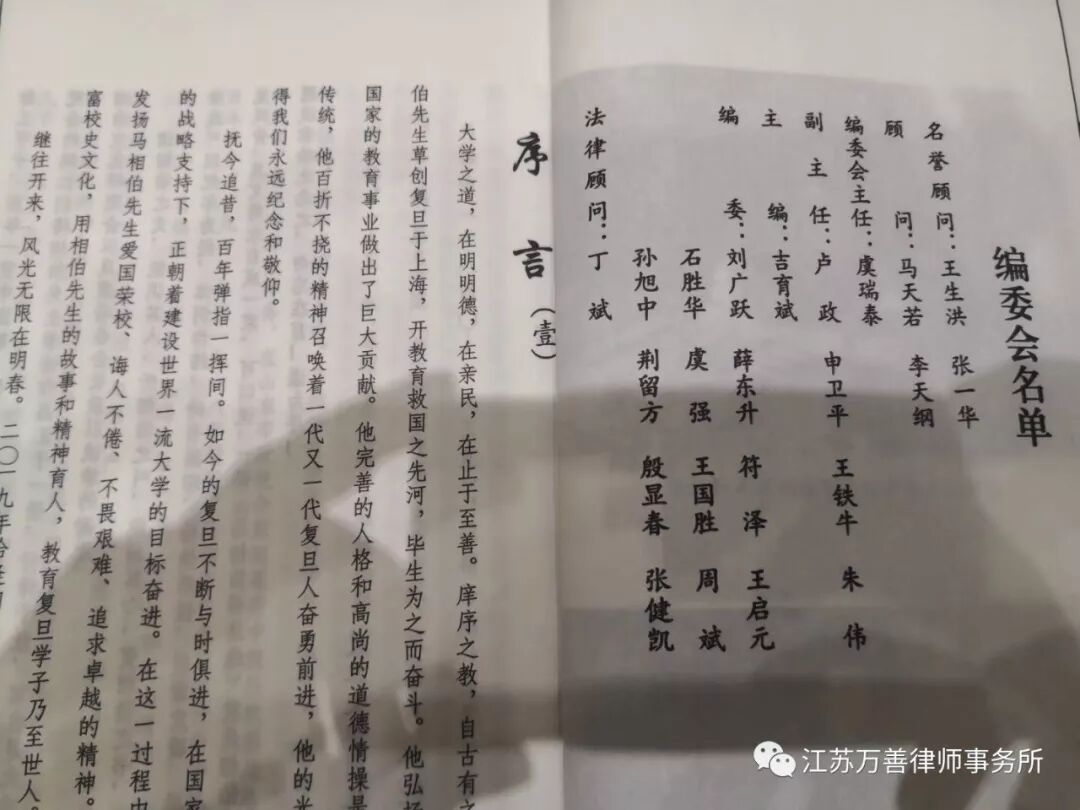 编委会名单
名誉顾问：王生洪 张一华
顾问：马天若 李天纲
编委会主任：虞瑞泰
副主任：卢政 申卫平 王铁牛 朱伟
主编：吉育斌
编委：刘广跃 薛东升 符泽 王启元
石胜华 虞强 王国胜 周斌
孙旭中 荆留方 殷显春 张健凯
法律顾问：丁斌
序言（壹）
大学之道，在明明德，在亲民，在止于至善。庠序之教，自古有之
伯先生草创复旦于上海，开教育救国之先河，毕生为之而奋斗。他弘扬
国家的教育事业做出了巨大贡献。他完善的人格和高尚的道德情操是
传统，他百折不挠的精神召唤着一代又一代复旦人奋勇前进，他的
得我们永远纪念和敬仰。
抚今追昔，百年弹指一挥间。如今的复旦不断与时俱进，在国家
的战略支持下，正朝着建设世界一流大学的目标奋进。在这一过程中
发扬马相伯先生爱国荣校、诲人不倦、不畏艰难、追求卓越的精神。
富校史文化，用相伯先生的故事和精神育人，教育复旦学子乃至世人。
继往开来，风光无限在明春。 二〇一九年
江苏万善律师事务所